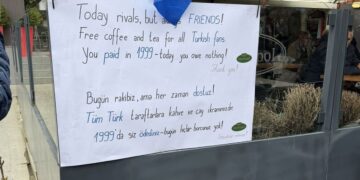 Today rivals, but always FRIENDS!
Free coffee and tea for all Turkish fans.
You paid in 1999 - today you owe nothing!
Thank you!
Bugün rakibiz, ama her zaman dostuz!
Tüm Türk taraftarlara kahve ve çay ikramımızdır.
1999'da siz ödediniz - bugün hiçbir borcunuz yok!